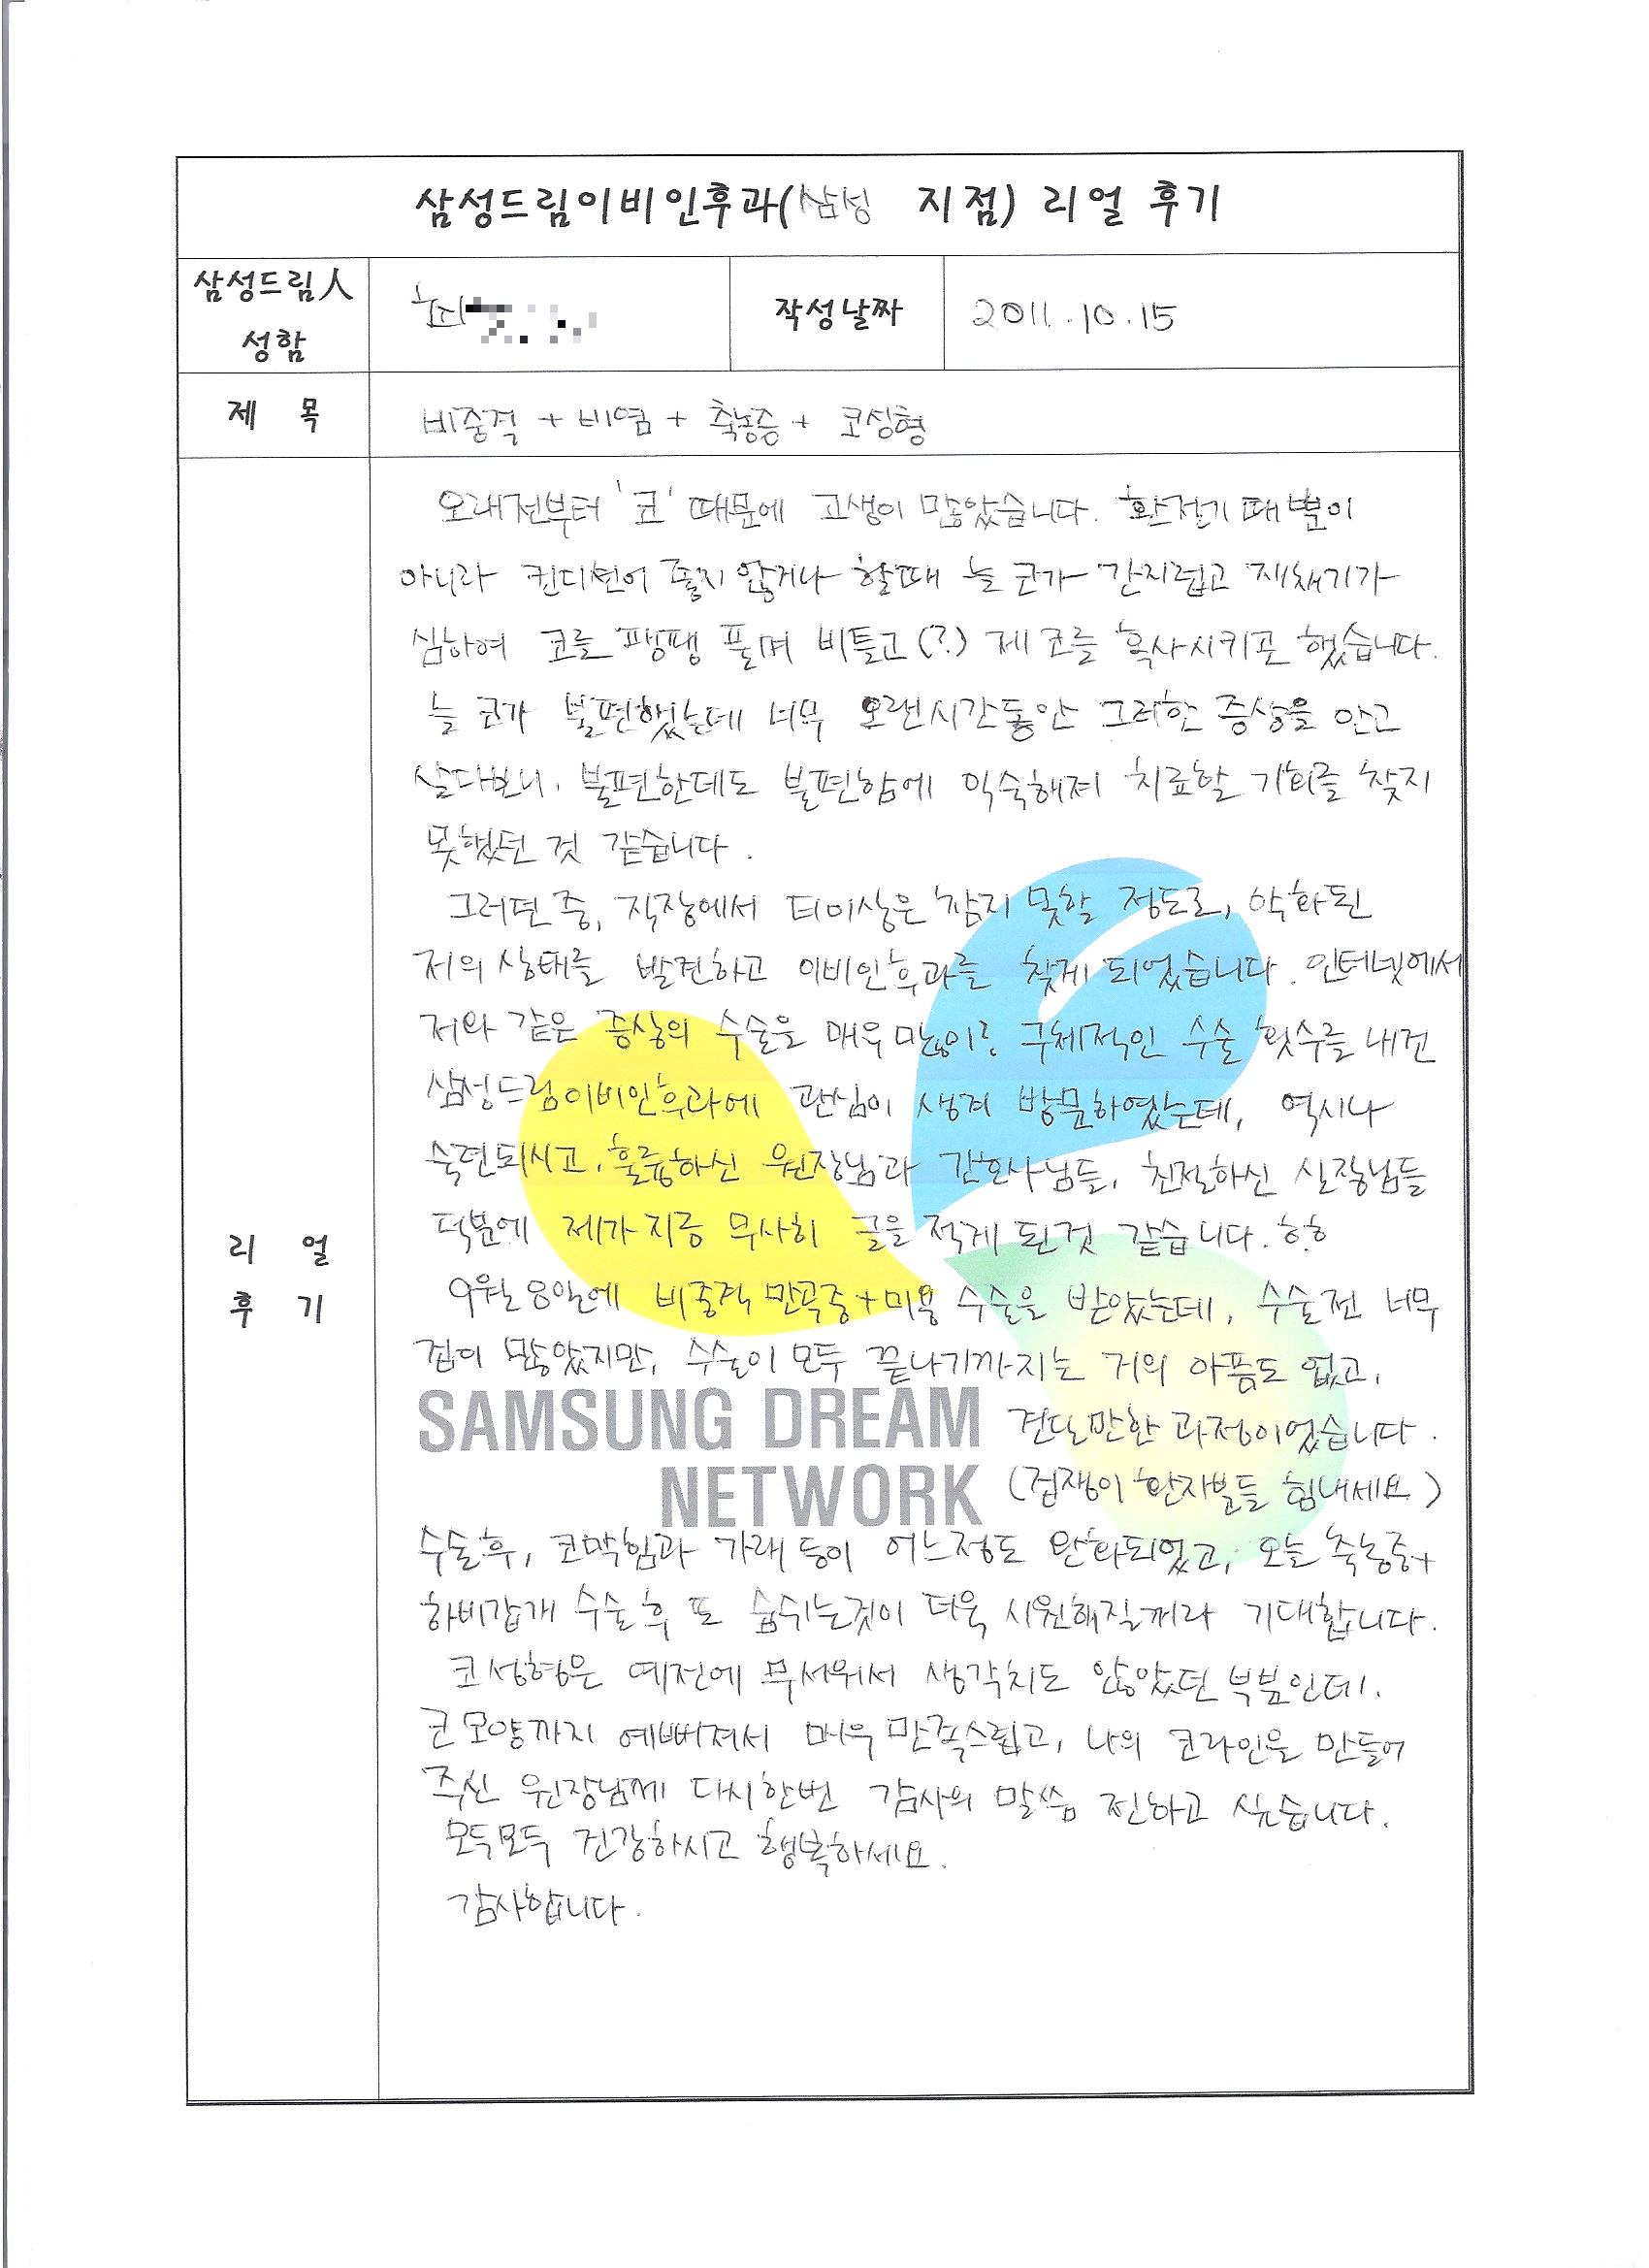 삼성드림이비인후과(삼성 지점) 리얼 후기
삼성드림人
성함
작성날짜
2011.10.15
제 목
비중격 + 비염 + 축농증 + 코성형
오래전부터 '코' 때문에 고생이 많았습니다. 환절기 때뿐이
아니라 컨디션이 좋지 않거나 할때 늘 코가 간지럽고 재채기가
심하여 코를 팽팽 풀며 비틀고(?) 제 코를 혹사시키곤 했습니다.
늘 코가 불편했는데 너무 오랜시간동안 그러한 증상을 안고
살다보니, 불편한데도 불편함에 익숙해져 치료할 기회를 찾지
못했던 것 같습니다.
그러던 중, 직장에서 더이상은 참지 못할 정도로, 악화된
저의 상태를 발견하고 이비인후과를 찾게 되었습니다. 인터넷에서
저와 같은 증상의 수술을 매우 많이! 구체적인 수술 횟수를 내건
삼성드림이비인후과에 관심이 생겨 방문하였는데, 역시나
숙련되시고, 훌륭하신 원장님과 간호사님들, 친절하신 실장님들
덕분에 제가 지금 무사히 글을 적게 된것 같습니다. ㅎㅎ
9월 8일에 비중격 만곡증+미용 수술을 받았는데, 수술전 너무
겁이 많았지만, 수술이 모두 끝나기까지는 거의 아픔도 없고,
견딜만한 과정이었습니다.
(겁쟁이 환자분들 힘내세요)
수술후, 코막힘과 가래 등이 어느정도 완화되었고, 오늘 축농증+
하비갑개 수술 후 또 숨쉬는것이 더욱 시원해질꺼라 기대합니다.
코성형은 예전에 무서워서 생각치도 않았던 부분인데,
코모양까지 예뻐져서 매우 만족스럽고, 나의 코라인을 만들어
주신 원장님께 다시한번 감사의 말씀 전하고 싶습니다.
모두모두 건강하시고 행복하세요.
감사합니다.
리 얼
후 기
SAMSUNG DREAM
NETWORK